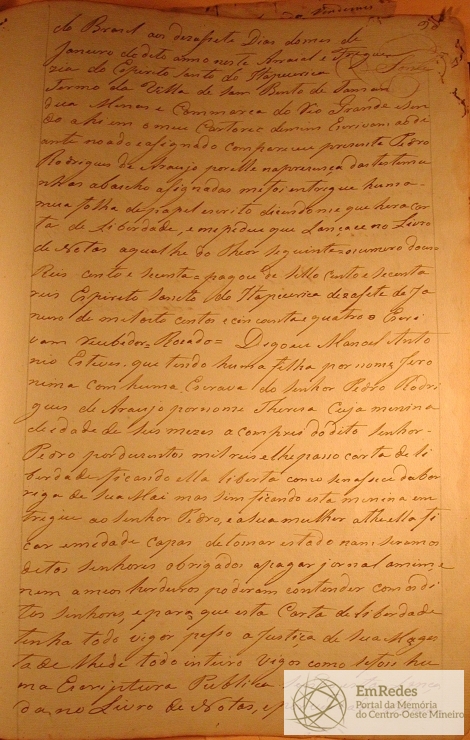 do Brasil aos dezasete Dias do mes de
Janeiro do dito anno neste Arraial e Fregue
zia do Espirito Santo de Itapicirica
Termo da Villa de Sam Bento de Taman
dua Minas e Commarca do Rio Grande sen
do ahi em o meu Cartorio demim Escrivam adi
ante noado e asignado compareceu presente Pedro
Rodrigues de Araujo por elle na presença das testemu
nhas abaicho asignadas me foi entregue huma
mea folha de papel escrito dizendome que hera car
ta de Liberdade, e me pedia que Lançace no Livro
de Nottas aqual he do theor seguinte
Reis cento e secenta = pagou de Sello cento e secenta
reis Espirito Sancto do Itapicirica dezasete de Ja
neiro de mil oito centos e cincoenta e quatro = Escri
vam recebidor = Rozado = Digo eu Manoel Anto
nio Esteves, que tendo huma filha por nome Jero
nima com huma Escrava do senhor Pedro Rodri
gues de Araujo por nome Thereza Cuja menina
de idade de seis mezes a comprei do dito senhor
Pedro por duzentos mil reis e lhe passo carta de li
berdade ficando ella liberta como se nascece da bar
riga de sua Mai mas sim ficando esta menina em
tregue ao senhor Pedro, e a sua mulher athe ella fi
car em edade capas de tomar estado nam seram os
ditos senhores obrigados apagar jornal amim, e
nem a meos herdeiros poderam contender com os di
tos senhores, e para que esta Carta de liberdade
tenha todo vigor pesso a Justiça de sua Mages
tade lhe dê todo inteiro vigor como se fose hu
ma Escriptura Publica
da, no Livro de Notas, e
EmRedes
Portal da Memória
do Centro-Oeste Mineiro